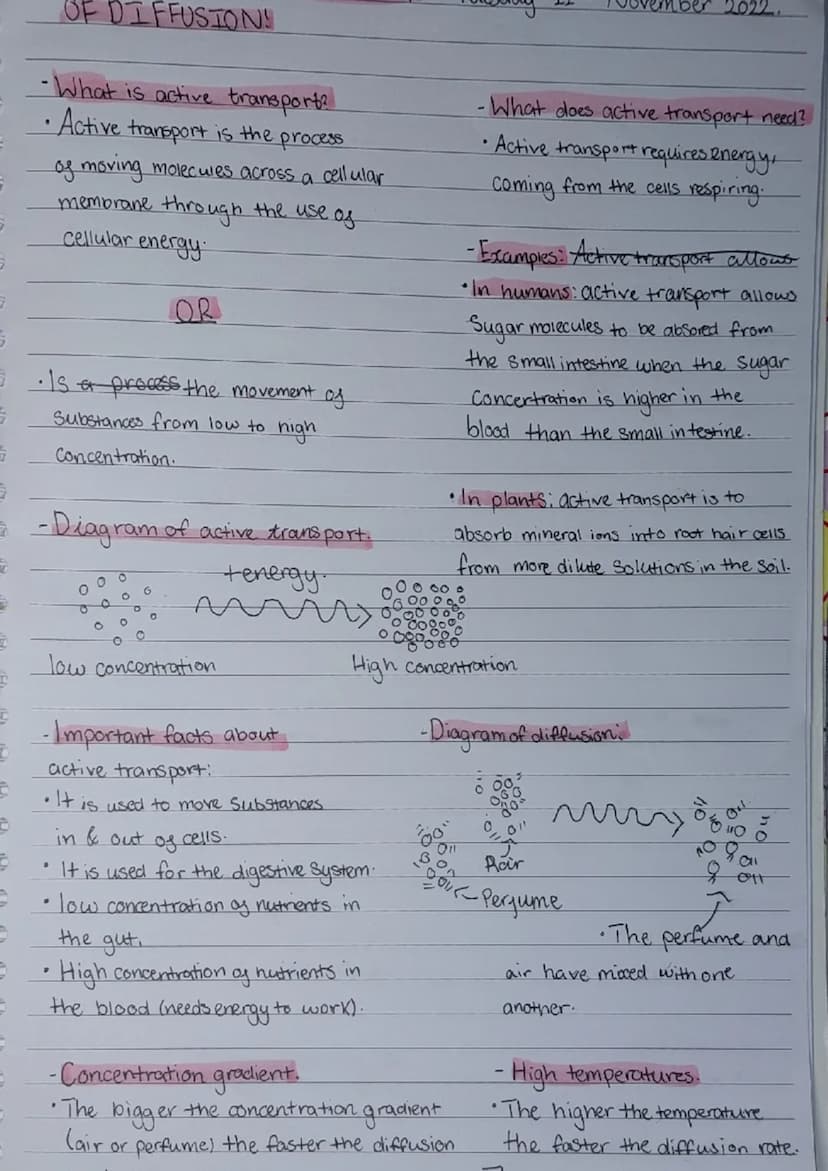 OF DIFFUSION!
November 2022.
- What is active transport?
• Active transport is the process
of moving molecules across a cellular
membrane through the use of
cellular energy.
OR
• Is a process the movement of
substances from low to high
concentration.
- Diagram of active transport.
+energy.
low concentration
High concentration
- Important facts about
active transport:
• It is used to move substances
in & out of cells.
• It is used for the digestive system.
• low concentration of nutrients in
the gut.
• High concentration of nutrients in
the blood (needs energy to work).
- Concentration gradient.
• The bigger the concentration gradient
(air or perfume) the faster the diffusion
- What does active transport need?
• Active transport requires energy,
coming from the cells respiring.
- Examples: Active transport allows
• In humans: active transport allows
Sugar molecules to be absored from
the small intestine when the sugar
concertration is higher in the
blood than the small intestine.
• In plants: active transport is to
absorb mineral ions into root hair cells
from more dilute solutions in the soil.
- Diagram of diffusion:
Perfume
• The perfume and
air have mixed with one
another.
- High temperatures.
• The higher the temperature
the faster the diffusion rate.